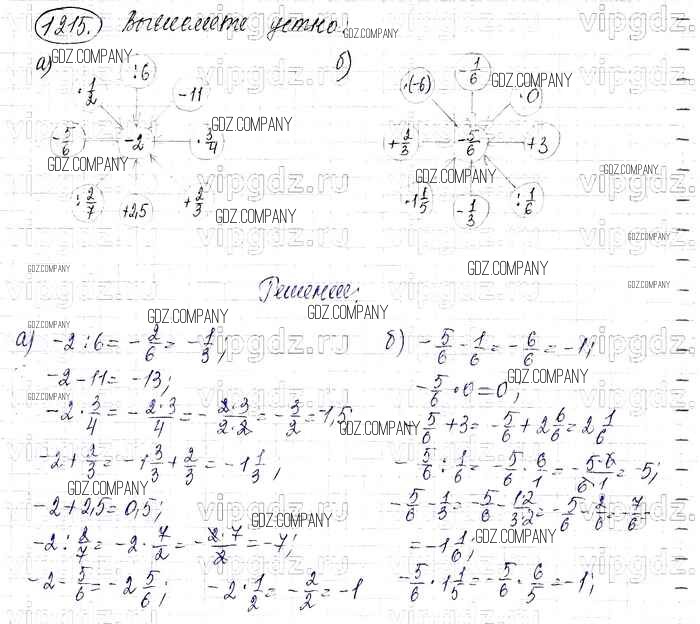 1215. Вычислите устно:
а) б)
: 6
· 1/2
- 11
- 5/6
- 2
· 3/4
: 2/7
+2,5
+ 2/3
- 1/6
·(-6)
· 0
+ 2/3
- 5/6
+ 3
· 1 1/5
- 1/3
: 1/6
Решение:
а) -2 : 6 = - 2/6 = - 1/3;
-2 - 11 = -13;
-2 · 3/4 = - 2·3/4 = - 2·3/2·2 = - 3/2 = -1,5
-2 + 2/3 = -1 3/3 + 2/3 = -1 1/3;
-2 + 2,5 = 0,5;
-2 : 2/7 = -2 · 7/2 = - 2·7/2 = -7;
-2 - 5/6 = -2 5/6; -2 · 1/2 = - 2/2 = -1
б) - 5/6 - 1/6 = - 6/6 = -1;
- 5/6 · 0 = 0;
- 5/6 + 3 = - 5/6 + 2 6/6 = 2 1/6
- 5/6 : 1/6 = - 5/6 · 6/1 = - 5·6/6·1 = -5;
- 5/6 - 1/3 = - 5/6 - 1·2/3·2 = - 5/6 - 2/6 = - 7/6 =
= -1 1/6;
- 5/6 · 1 1/5 = - 5/6 · 6/5 = -1;
GDZ.COMPANY
vipgdz.ru